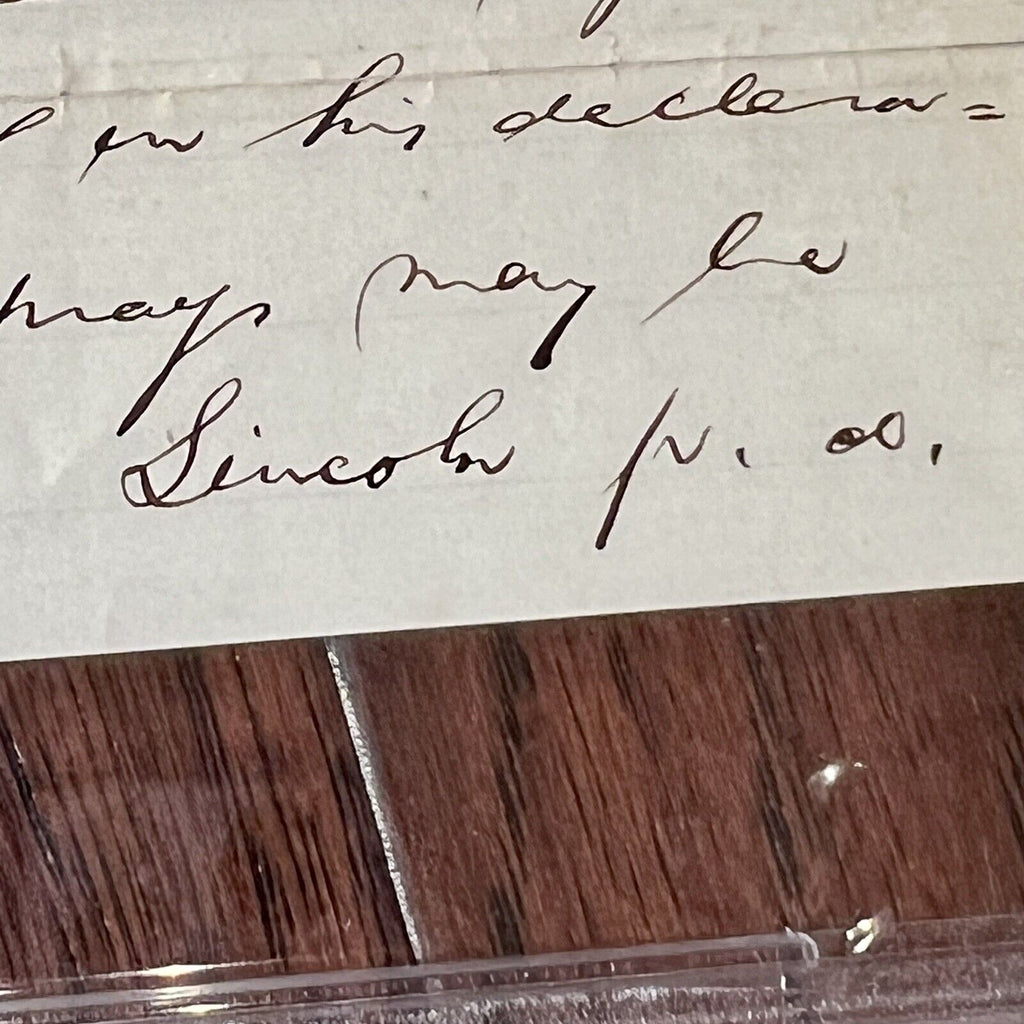 in his declara=
prays may be
Lincoln p. d.